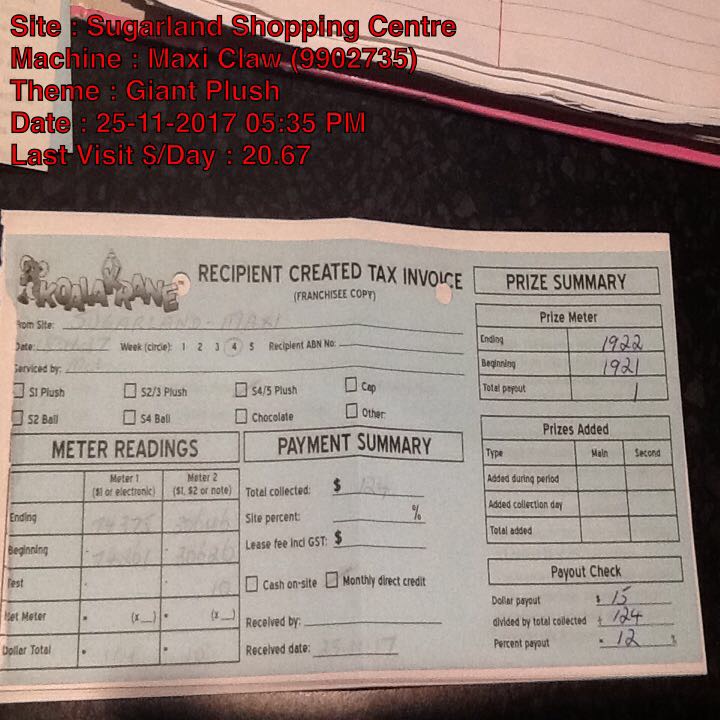 Site : Sugarland Shopping Centre
Machine : Maxi Claw (9902735)
Theme : Giant Plush
Date : 25-11-2017 05:35 PM
Last Visit $/Day : 20.67
KOALA KRANE
RECIPIENT CREATED TAX INVOICE
(FRANCHISEE COPY)
From Site: SUGARLAND - MAXI
Date: Week (circle): 1 2 3 4 5 Recipient ABN No:
Serviced by:
S1 Plush S2/3 Plush S4/5 Plush Cap
S2 Ball S4 Ball Chocolate Other:
METER READINGS
Meter 1 Meter 2
($1 or electronic) ($1, $2 or note)
Ending
Beginning
Test 10
Net Meter = (x__) = (x__)
Dollar Total
PAYMENT SUMMARY
Total collected: $ 124
Site percent: %
Lease fee incl GST: $
Cash on-site Monthly direct credit
Received by:
Received date: 25.11.17
PRIZE SUMMARY
Prize Meter
Ending 1922
Beginning 1921
Total payout 1
Prizes Added
Type Main Second
Added during period
Added collection day
Total added
Payout Check
Dollar payout $ 15
divided by total collected ÷ 124
Percent payout = 12 %